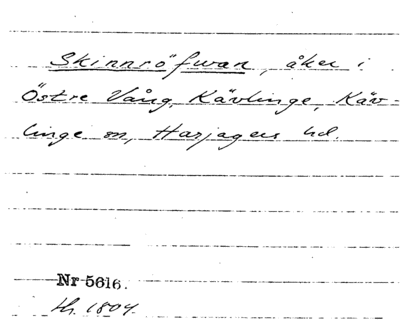 Skinnröfwan, åker i
Östre Vång, Kävlinge, Käv-
linge sn, Harjagers hd.
Nr 5616.
1804.